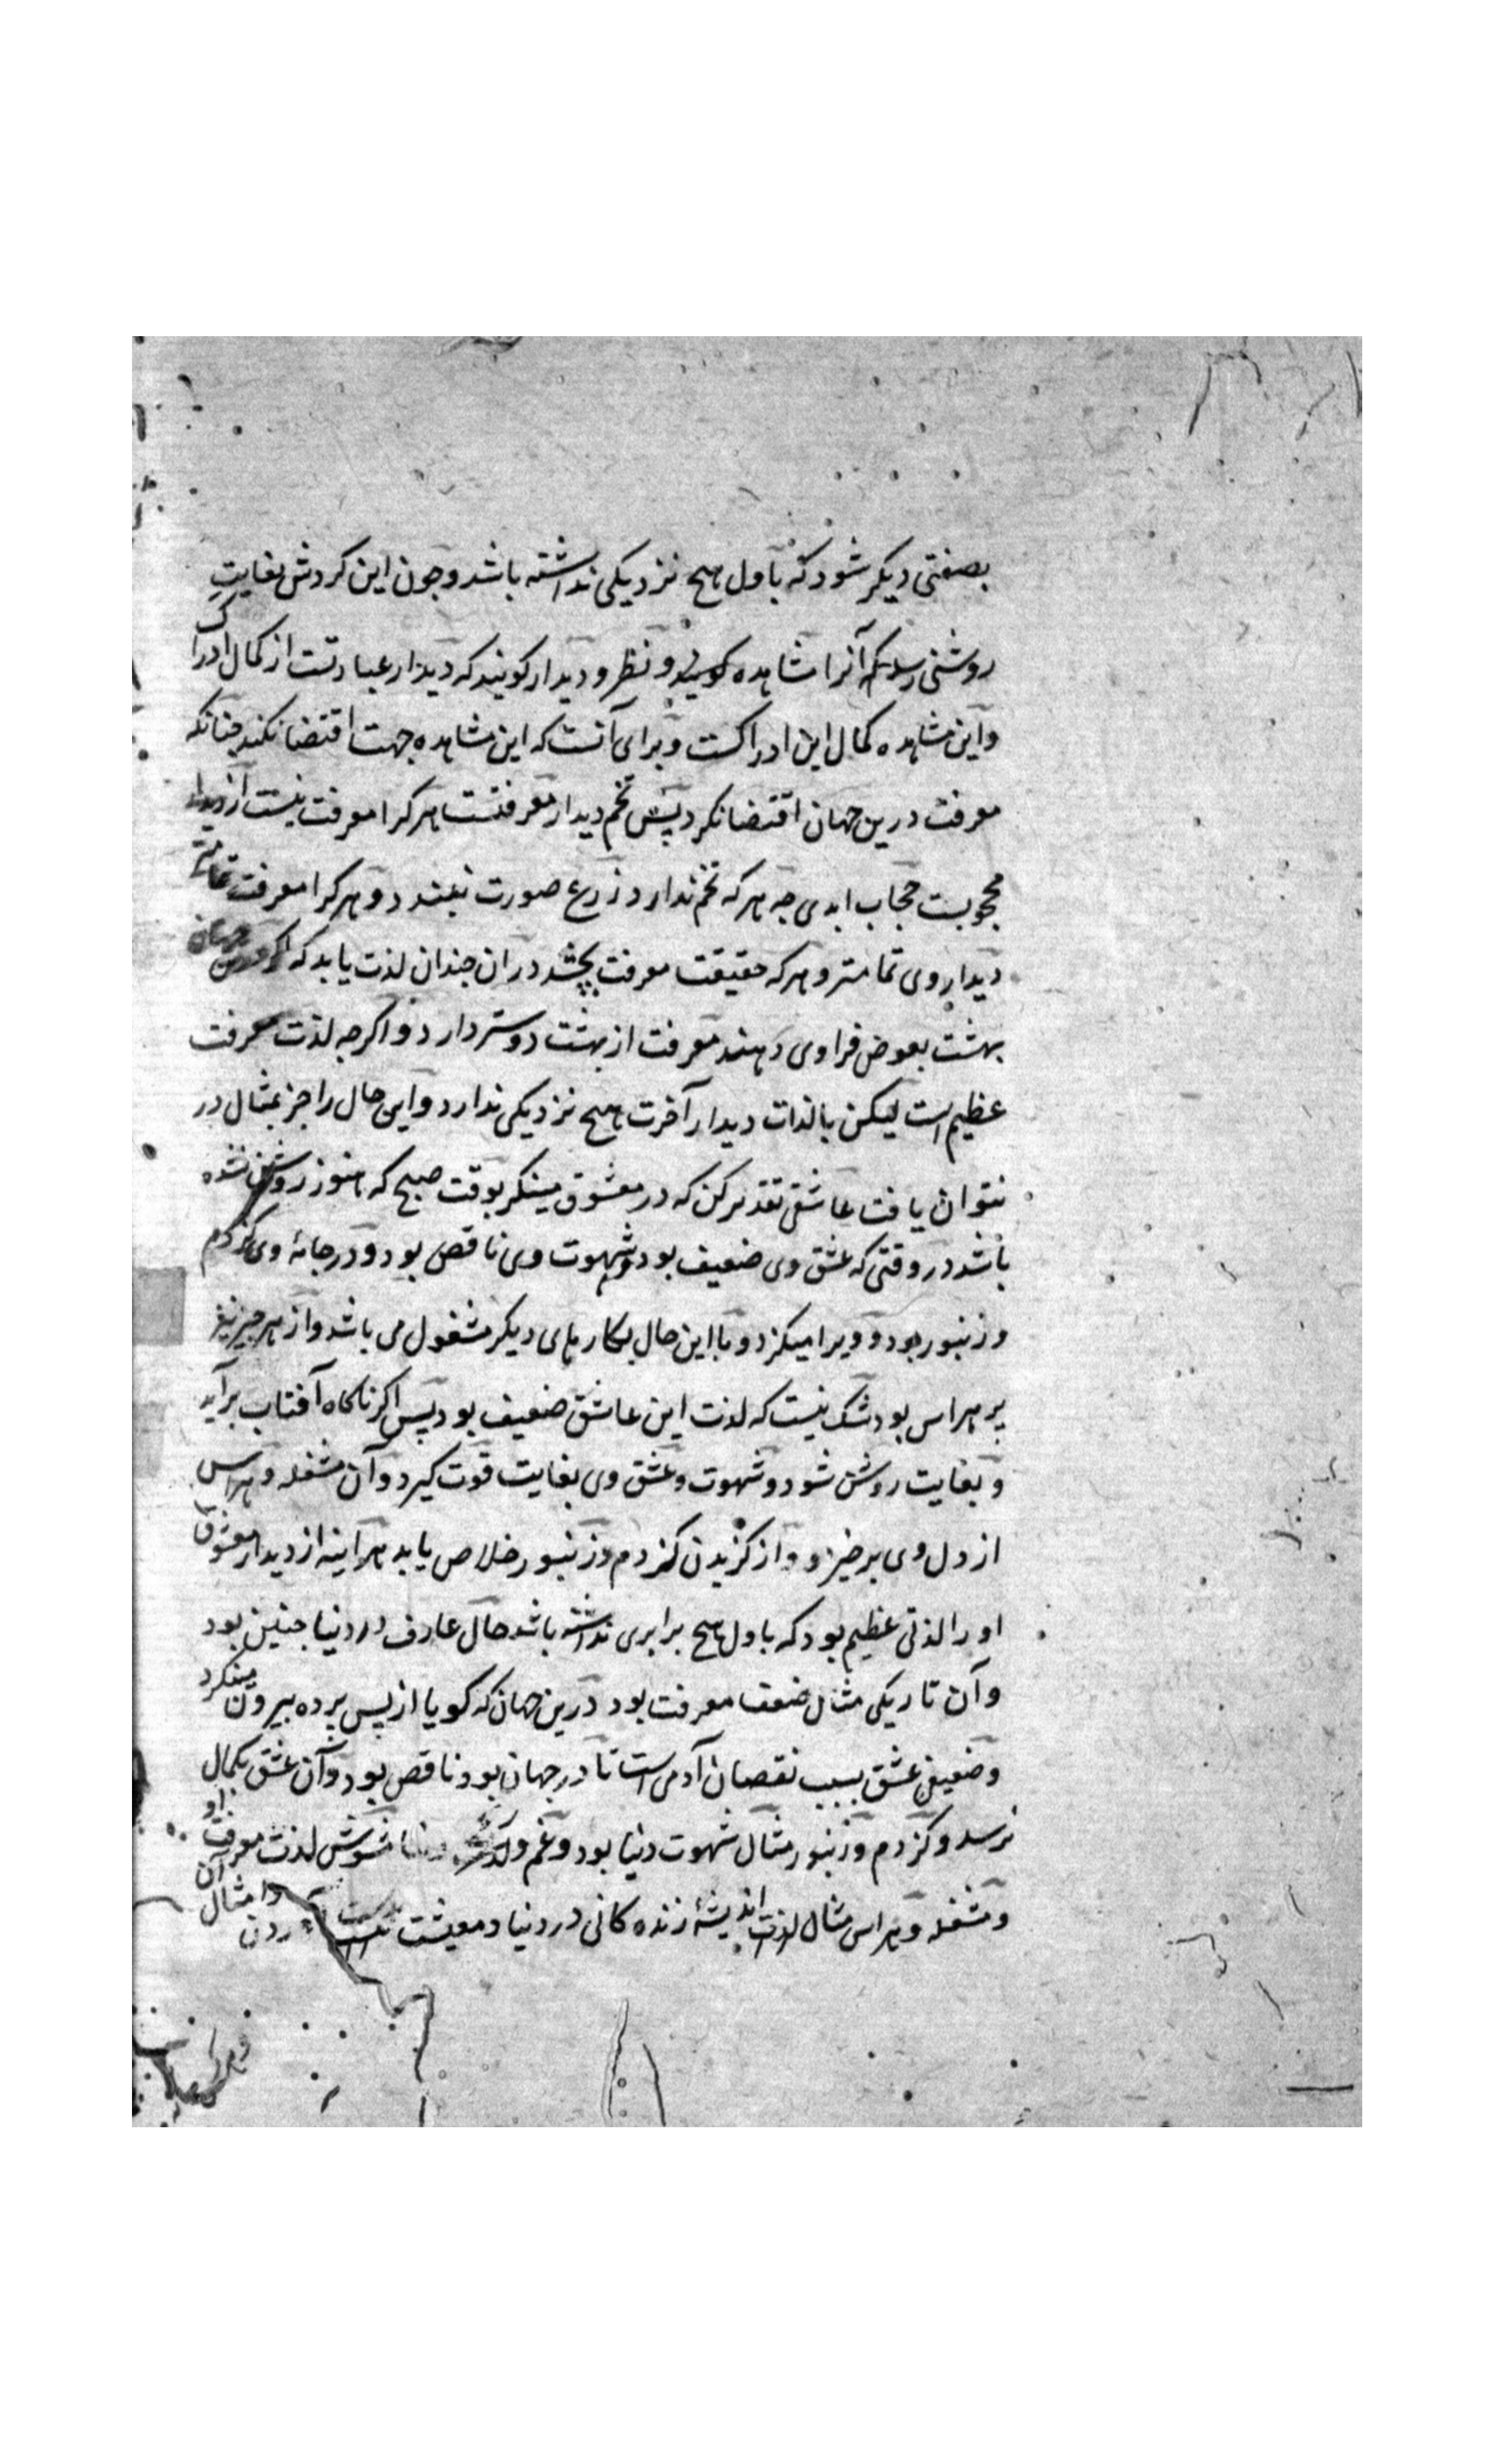 بصفتی دیکر شود که باول هیچ نزدیکی نداشته باشد و چون این کردش بغایت
روشنی رسد که آنرا مشاهده کویند و نظر و دیدار کویند که دیدار عبارتست از کمال ادراک
و این مشاهده کمال این ادراکست و برای آنست که این مشاهده جهت اقتضا نکند چنانکه
معرفت درین جهان اقتضا نکرد پس تخم دیدار معرفتست هر کرا معرفت نیست از دیدار
محجوبست حجاب ابدی چه هر که تخم ندارد زرع صورت نبندد و هر کرا معرفت تمامتر
دیدار وی تمامتر و هر که حقیقت معرفت بچشد در ان چندان لذت یابد که اکر
بهشت بعوض فراوی دهند معرفت از بهشت دوستر دارد و اکر چه لذت معرفت
عظیم است لیکن با لذات دیدار آخرت هیچ نزدیکی ندارد و این حال را جز بمثال در
نتوان یافت عاشقی تقدیر کن که در معشوق مینکر بوقت صبح که هنوز روشن نشده
باشد در وقتی که عشق وی ضعیف بود و شهوت وی ناقص بود و در جامهٔ وی کژدم
و زنبور بود و ویرا میکزد و با این حال بکارهای دیکر مشغول می باشد و از هر چیز نیز
پر هراس بود شک نیست که لذت این عاشق ضعیف بود پس اکر ناکاه آفتاب برآید
و بغایت روشن شود و شهوت و عشق وی بغایت قوت کیرد و آن مشغله و هراس
از دل وی برخیزد و از کزیدن کژدم و زنبور خلاص یابد هراینه از دیدار معشوق
او را لذتی عظیم بود که باول هیچ برابری نداشته باشد حال عارف در دنیا چنین بود
و آن تاریکی مثال ضعف معرفت بود درین جهان که کویا از پس پرده بیرون مینکرد
و ضعیفی عشق بسبب نقصان آدمی است تا در جهان بود ناقص بود و آن عشق بکمال
نرسد و کژدم و زنبور مثال شهوت دنیا بود و غم و مشوش لذت معرفت او
و مشغله و هراس مثال اندیشهٔ زنده کانی در دنیا و معیشت بدست آوردن و امثال آن